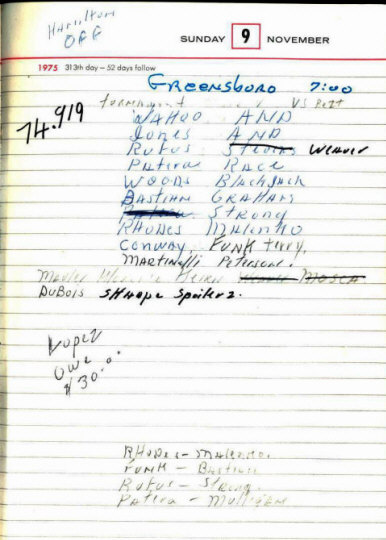 Hamilton
OFF
SUNDAY 9 NOVEMBER
1975 313th day — 52 days follow
GREENSBORO 7:00
tournament VS
74.919
WAHOO AND
Jones AND
Rufus Stevens WEAVER
Patera Race
WOODS Blackjack
BASTIAN GRAHAM
Patera STRONG
RHODES MALENKO
CONWAY, FUNK Terry,
MARTINELLI Peterson.
MOSCA
DUBOIS SHARPE Spoiler 2.
Lopez
owe
$30.00
RHODES - MALENKO.
FUNK - BASTIAN
Rufus - Strong
Patera - MULLIGAN